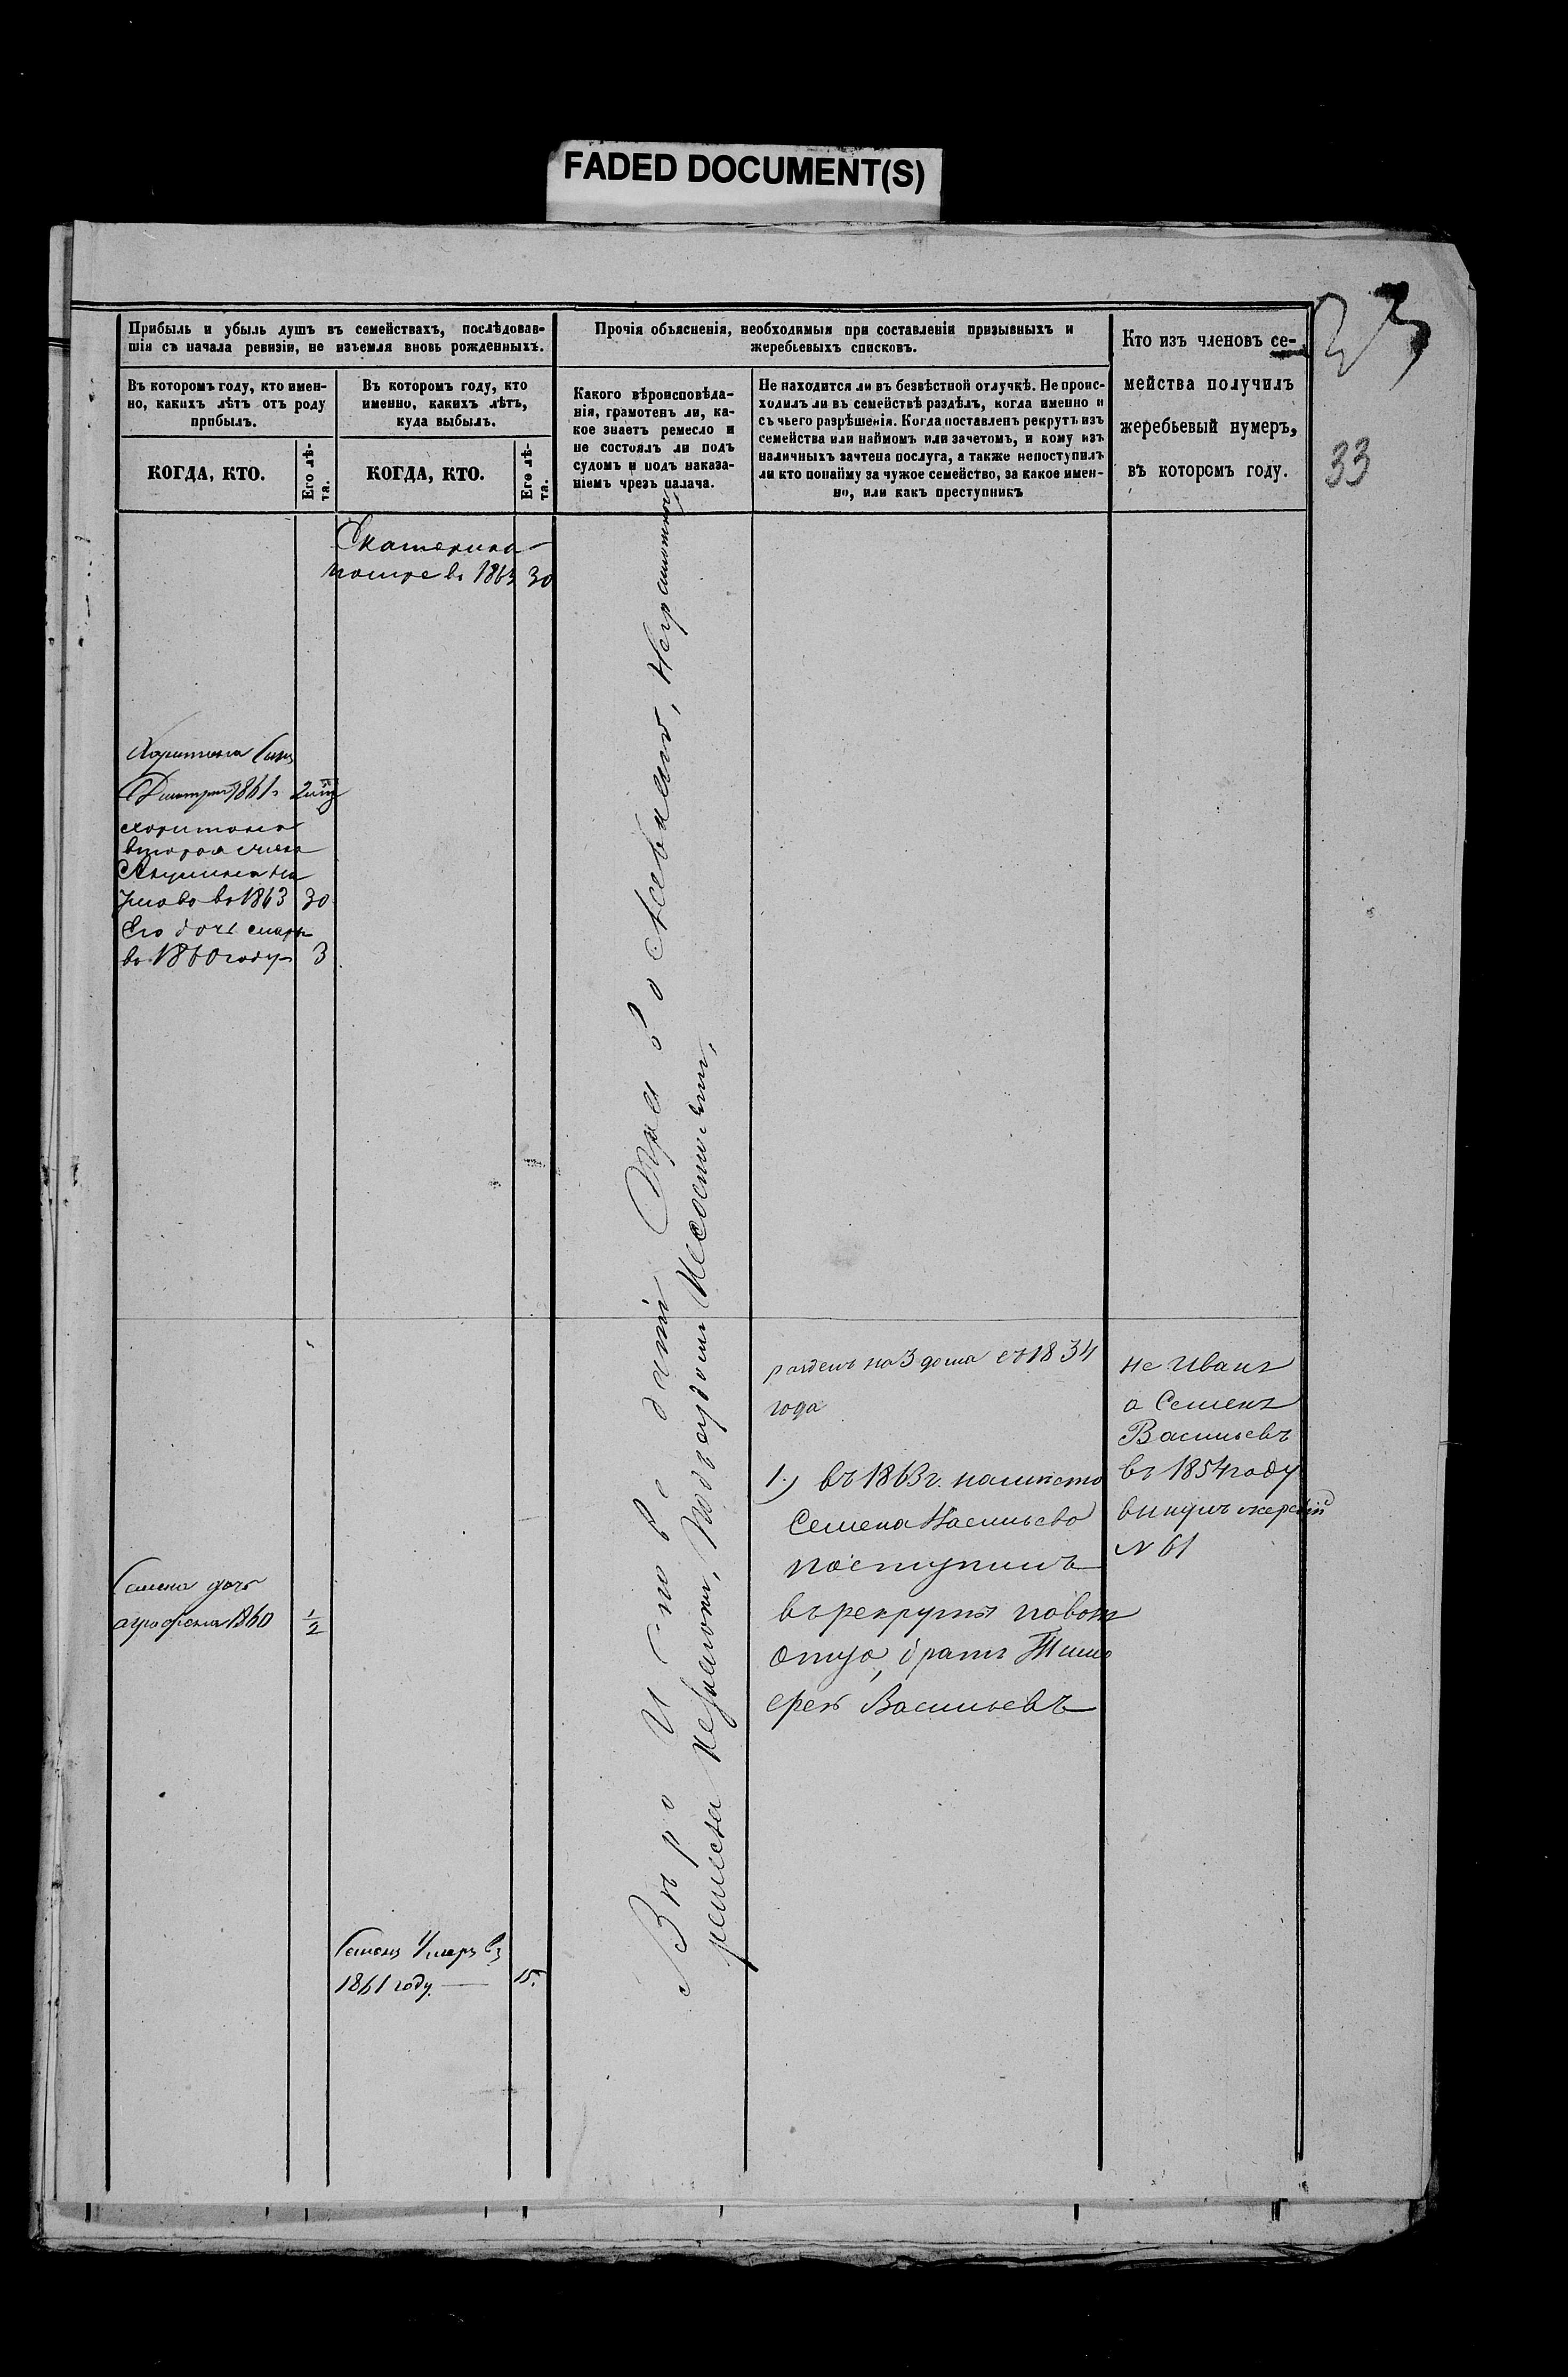 FADED DOCUMENT(S)
33
33
Прибыль и убыль душъ въ семействахъ, послѣдовав-
шія съ начала ревизіи, не изъемля вновь рожденныхъ.
Въ которомъ году, кто имен-
но, какихъ лѣтъ отъ роду
прибылъ.
КОГДА, КТО.
Его лѣ-
та.
Въ которомъ году, кто
именно, какихъ лѣтъ,
куда выбылъ.
КОГДА, КТО.
Его лѣ-
та.
Прочія объясненія, необходимыя при составленіи призывныхъ и
жеребьевыхъ списковъ.
Какого вѣроисповѣда-
нія, грамотенъ ли, ка-
кое знаетъ ремесло и
не состоялъ ли подъ
судомъ и подъ наказа-
ніемъ чрезъ палача.
Не находится ли въ безвѣстной отлучкѣ. Не проис-
ходилъ ли въ семействѣ раздѣлъ, когда именно и
съ чьего разрѣшенія. Когда поставленъ рекрутъ изъ
семейства или наймомъ или зачетомъ, и кому изъ
наличныхъ зачтена послуга, а также непоступилъ
ли кто понайму за чужое семейство, за какое имен-
но, или какъ преступникъ
Кто изъ членовъ се-
мейства получилъ
жеребьевый нумеръ,
въ которомъ году.
Екатерина
въ 1863 30
Харитона сынъ
Дмитрій 1861
Харитона
вторая жена
въ 1863 30
Его дочь
въ 1860 году 3
Вѣро Исповѣданія Православнаго, Неграмотны
ремесла незнаютъ, Подъ судомъ Несостояли,
на 3 дома съ 1834
года
1.) въ 1863 г. наместо
Семена Васильева
поступилъ
въ рекруты
братъ Тимо
фей Васильевъ
не Иванъ
а Семенъ
Васильевъ
въ 1854 году
вынулъ жеребій
N 61
Семена дочь
Аграфена 1860 1/2
Семенъ Умеръ въ
1861 году. — 15.